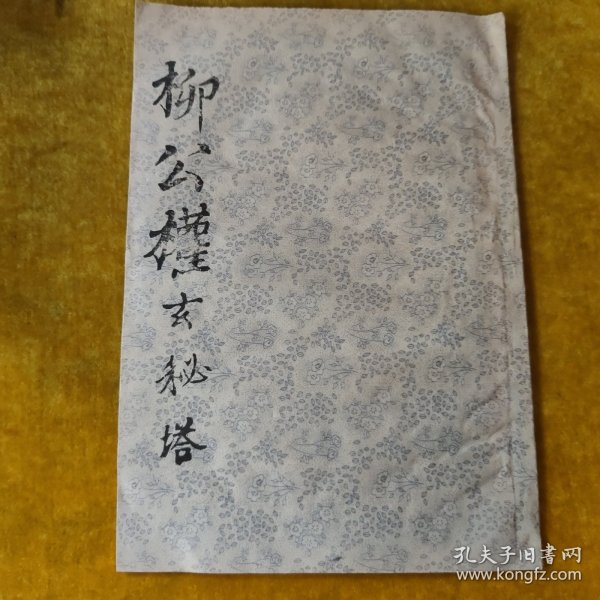 柳公權玄秘塔
孔夫子旧書网
www.kongfz.com